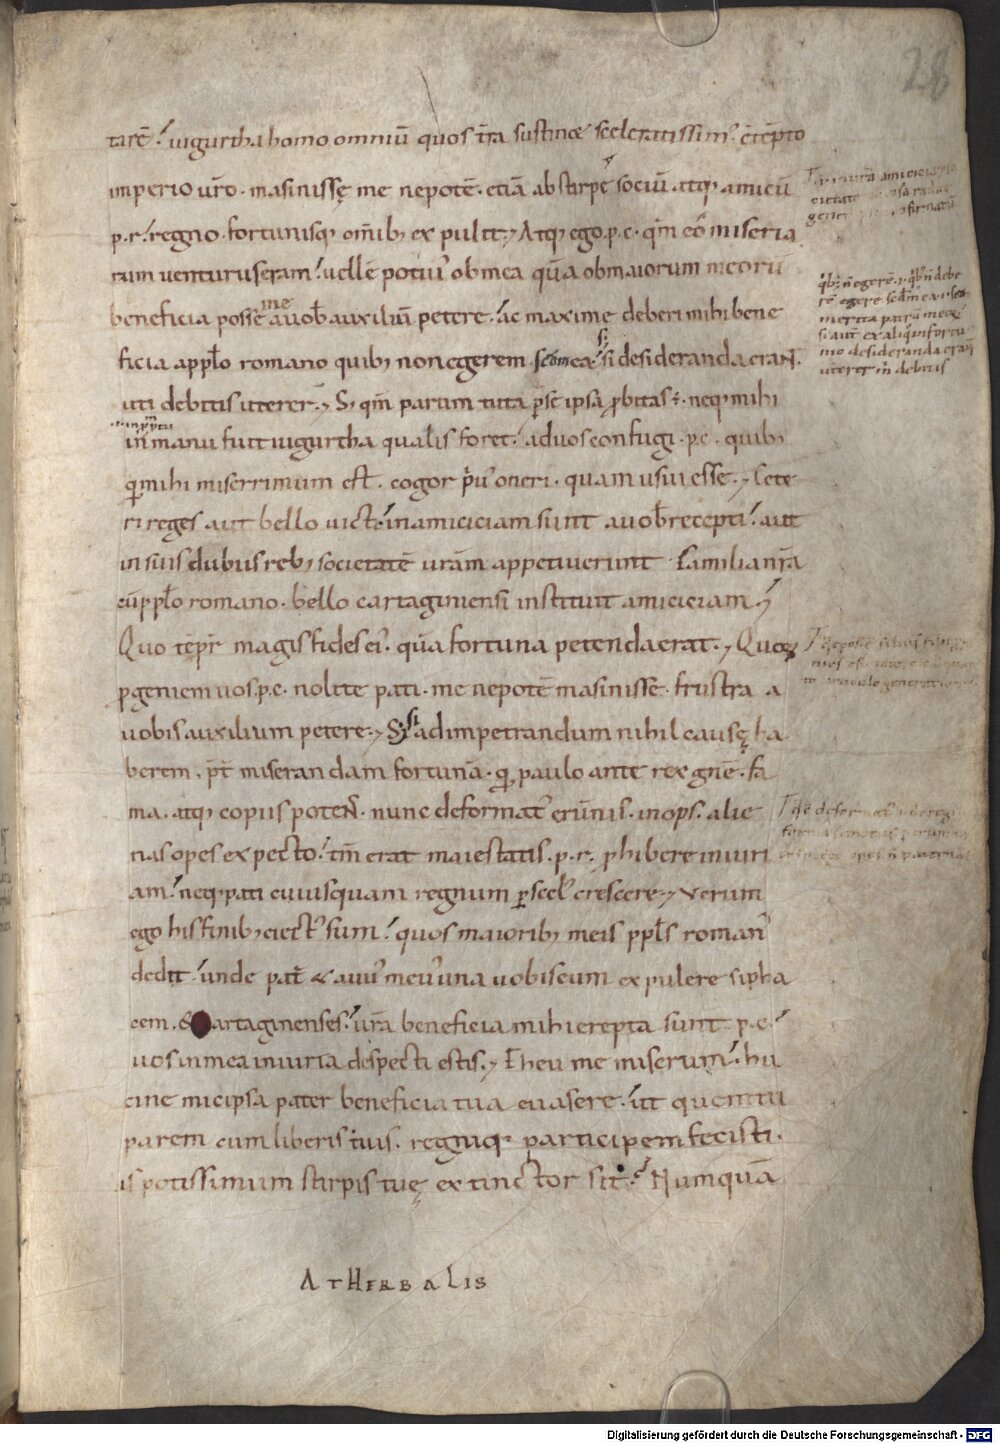 28
tarē. iugurtha homo omniū quos tr̄a sustinet sceleratissim᷒. c̄tēpto
imperio ur̄o. masinissę me nepotē. etiā ab stirpe sociū atq; amicū
p. r. regno. fortunisq; om̄ib; expulit; Atq; ego. p. c. q̄m eo miseria
rum uenturus eram. uellē poti᷒ ob mea quā ob maiorum meorū
beneficia posse me a uob̄ auxiliū petere. ac maxime deberi mihi bene
ficia a pplō romano quib; non egerem. scđm ea si si desideranda erant.
uti debitis uterer; S; qm̄ parum tuta p̄ se ipsa p̄bitas ē. neq; mihi
in manu fuit iugurtha qualis foret. ad uos confugi. p. c. quib;
q̄ mihi miserrimum est. cogor pri᷒ oneri. quam usui esse; Cete
ri reges aut bello uicti in amiciciam sunt a uob̄ recepti. aut
in suis dubiis reb; societatē urām appetiuerunt. familia nr̄a
cū pplō romano. bello cartaginiensi instituit amiciciam;
Quo tēpr̄ magis fides ei᷒. quā fortuna petenda erat; Quorꝝ
p̄geniem uos. p. c. nolite pati. me nepotē masinissę. frustra a
uobis auxilium petere; S; si ad impetrandum nihil causę ha
berem. p̄t miserandam fortunā. q̄ paulo ante rex gn̄e. fa
ma. atq; copiis potens. nunc deformat᷒ erūnis. inops. alie
nas opes expecto. tm̄ erat maiestatis. p. r. p̄hibere iniuri
am. neq; pati cuiusquam regnum p̄ scel᷒ crescere; Verum
ego his finib; eiect᷒ sum. quos maiorib; meis ppls̄ roman᷒
dedit. unde pat̄ & auus meus una uobiscum expulere sipha
cem. & cartaginenses. ur̄a beneficia mihi erepta sunt. p. c.
uos in mea iniuria despecti estis; Eheu me miserum. hu
cine micipsa pater beneficia tua euasere. ut quem tu
parem cum liberis tuis. regniq; participem fecisti.
is potissimum stirpis tuę extinctor sit. Numquā
ATHERBALIS
Digitalisierung gefördert durch die Deutsche Forschungsgemeinschaft - DFG